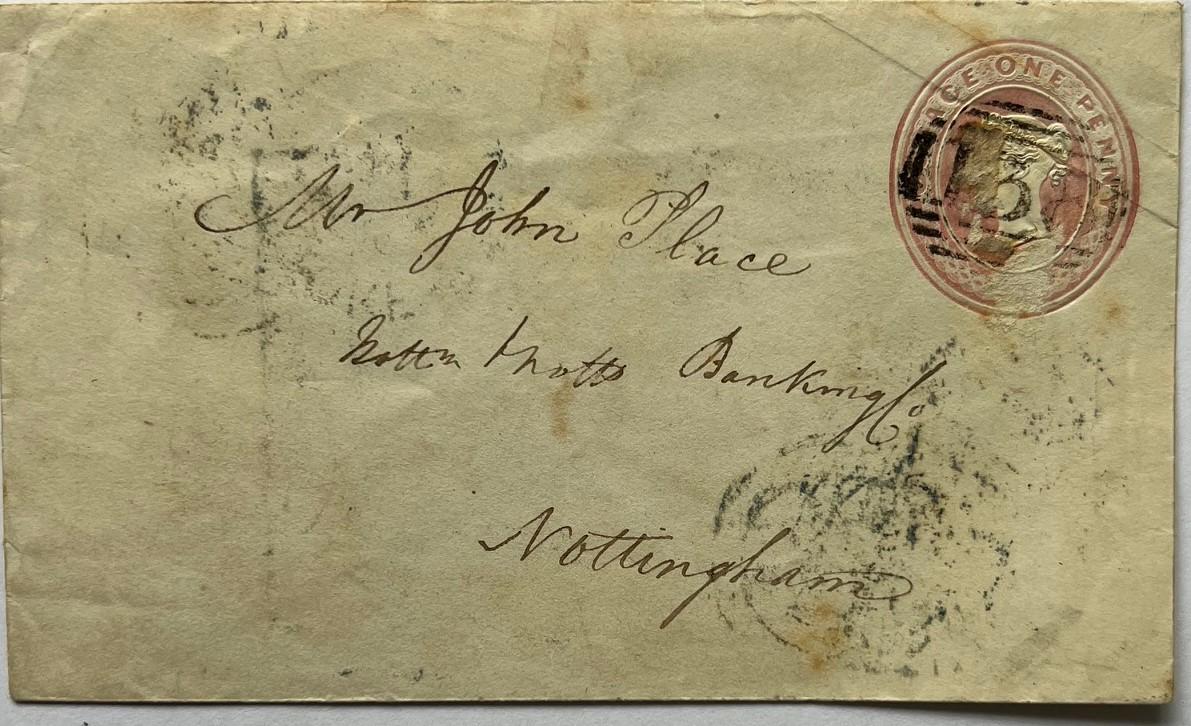 POSTAGE ONE PENNY
Mr John Place
Nottm & Notts Banking Co
Nottingham